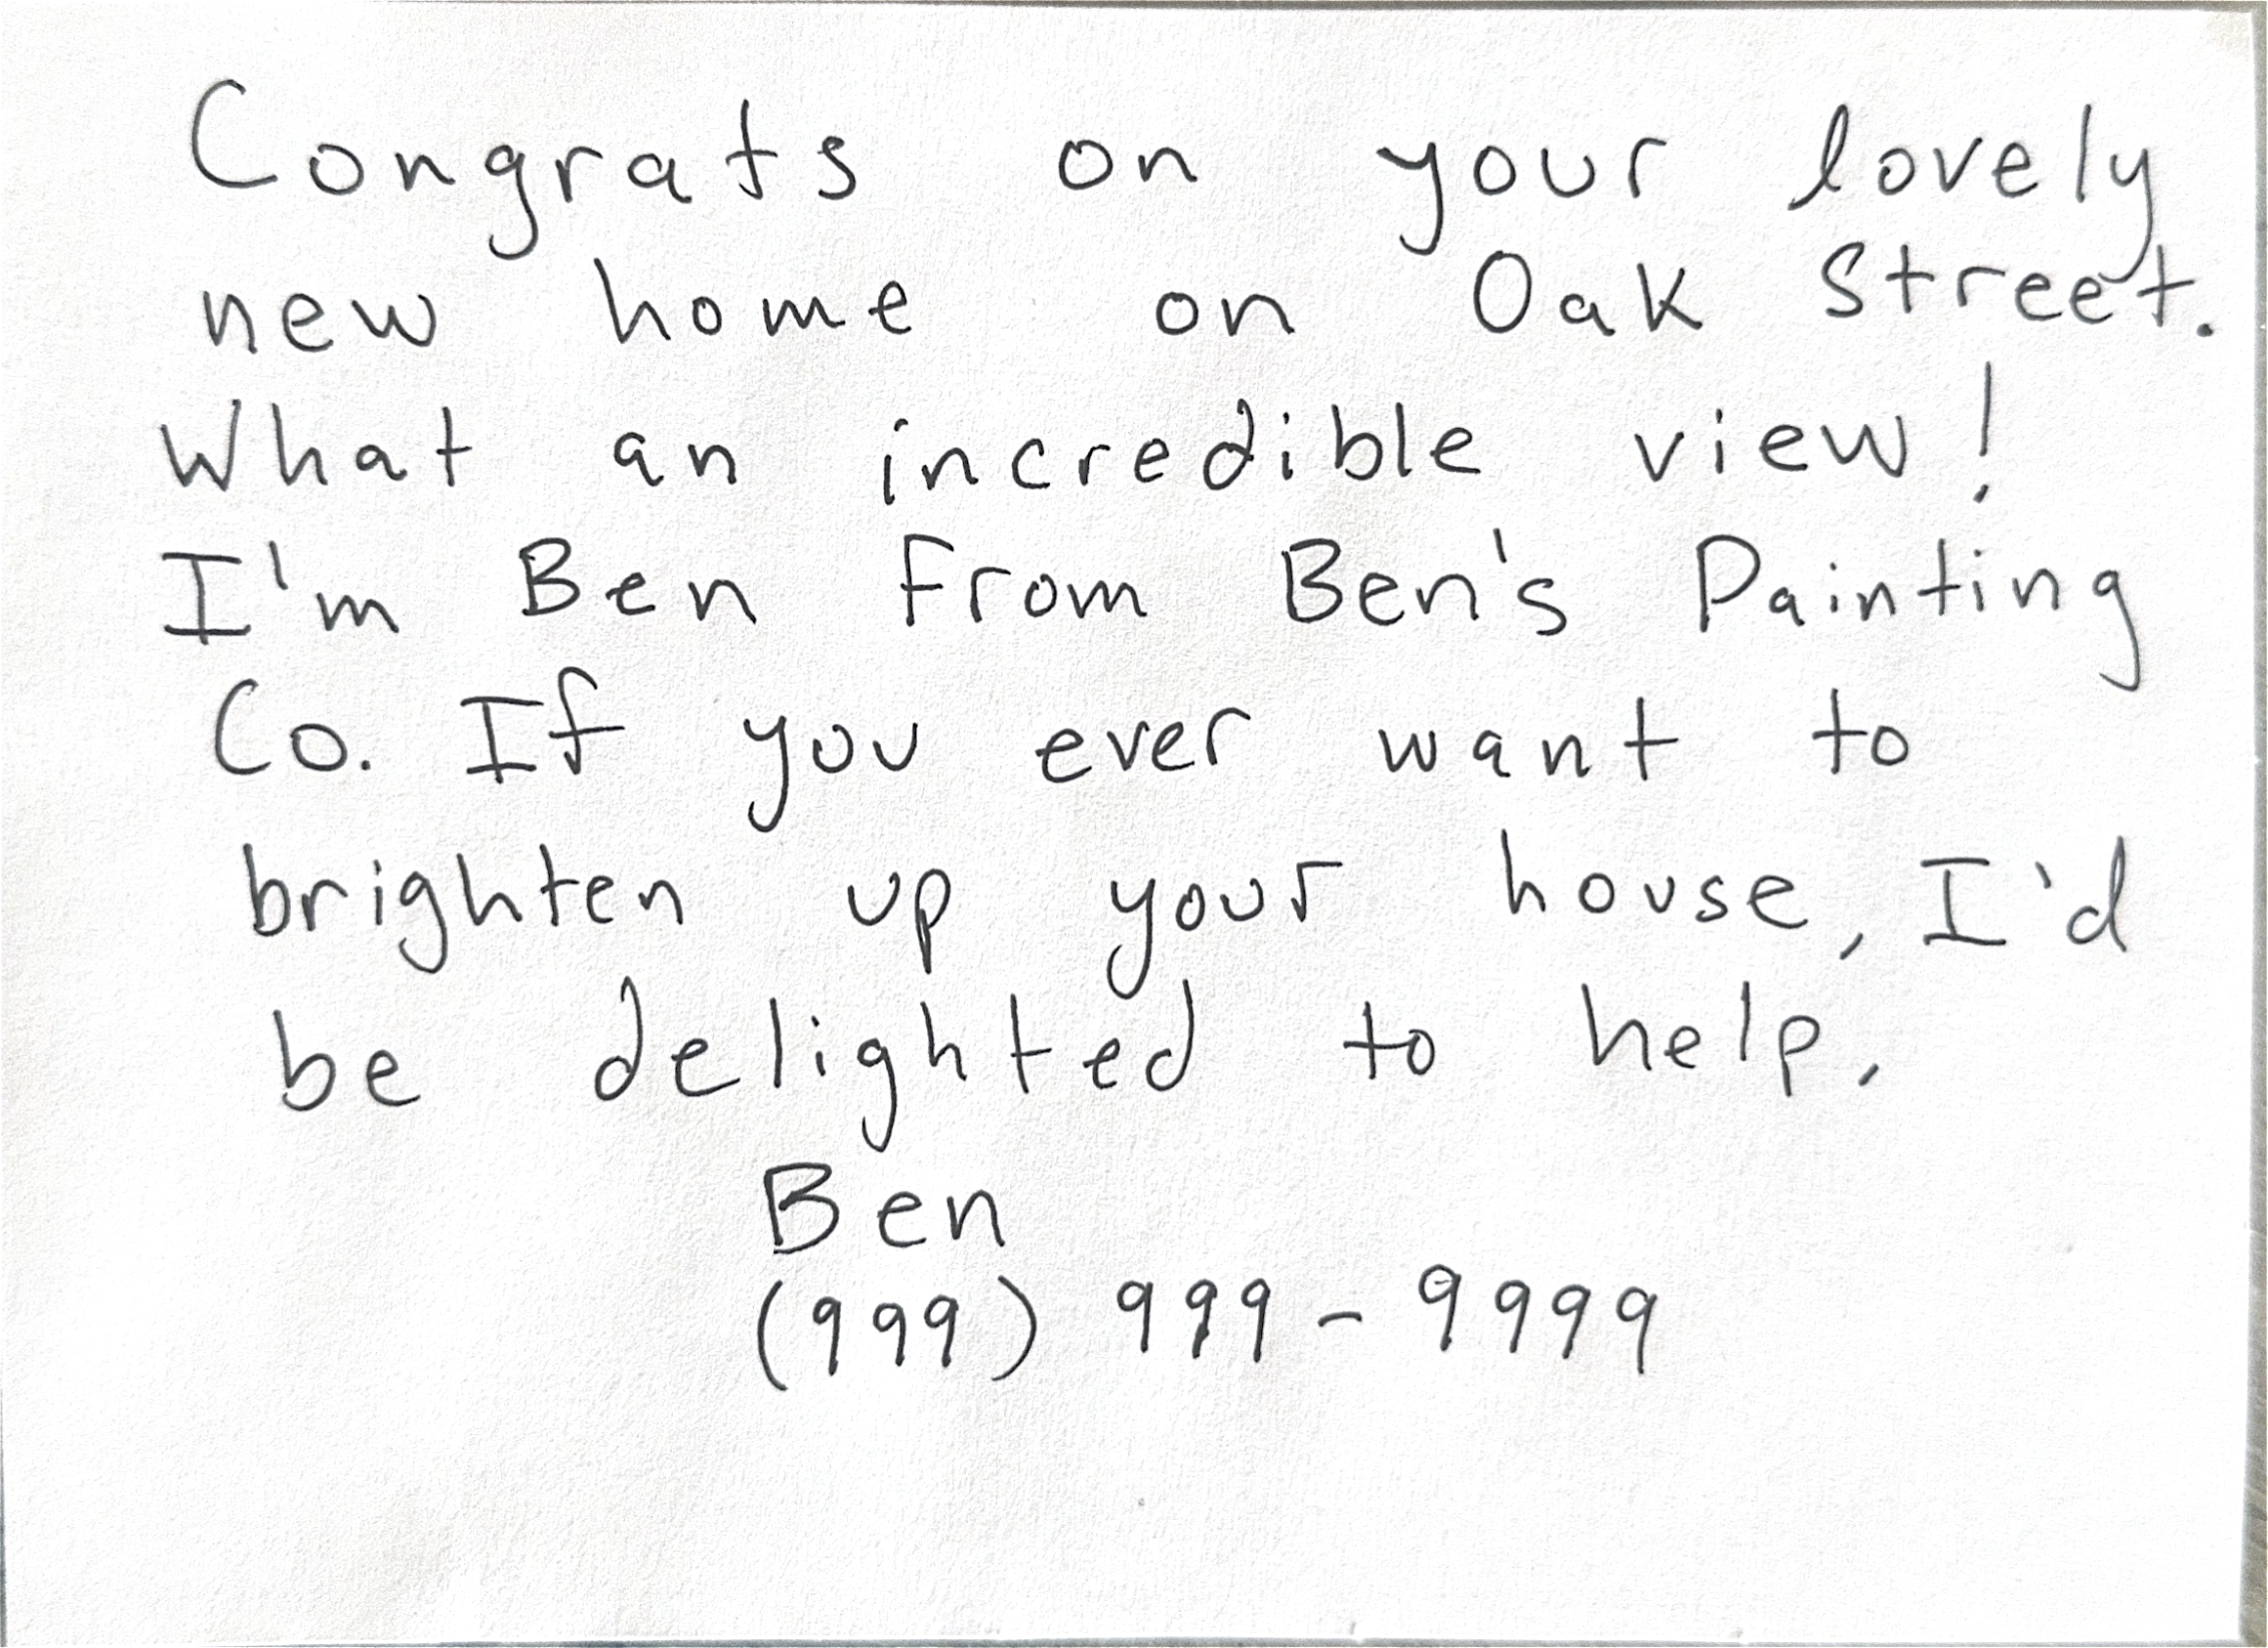 Congrats on your lovely
new home on Oak Street.
What an incredible view!
I'm Ben from Ben's Painting
Co. If you ever want to
brighten up your house, I'd
be delighted to help.
Ben
(999) 999-9999